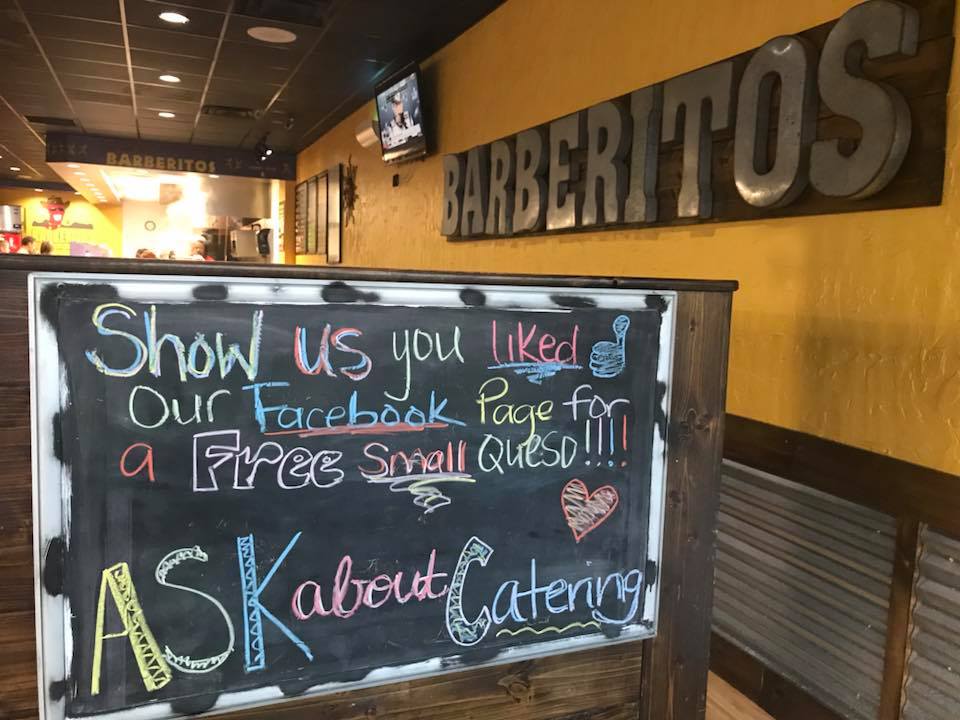 BARBERITOS
BARBERITOS
Show us you liked
our Facebook Page for
a Free Small Queso!!!!
ASK about Catering